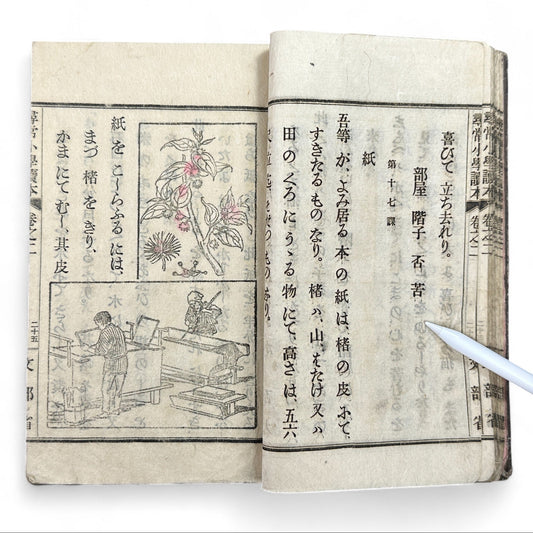 尋常小學讀本
卷之二
部省
喜びて、立ち去れり。
部屋 階子 否 苦
第十七課
紙
吾等が、よみ居る本の紙は、楮の皮にて、
すきたるものなり。楮ハ、山をたけ又ハ
田のくろにうゝる物にて、高さは、五六
紙をこしらふるには、
まづ楮をきり、
かまにてむし、其皮
尋常小學讀本
卷之二
二十五
文部省